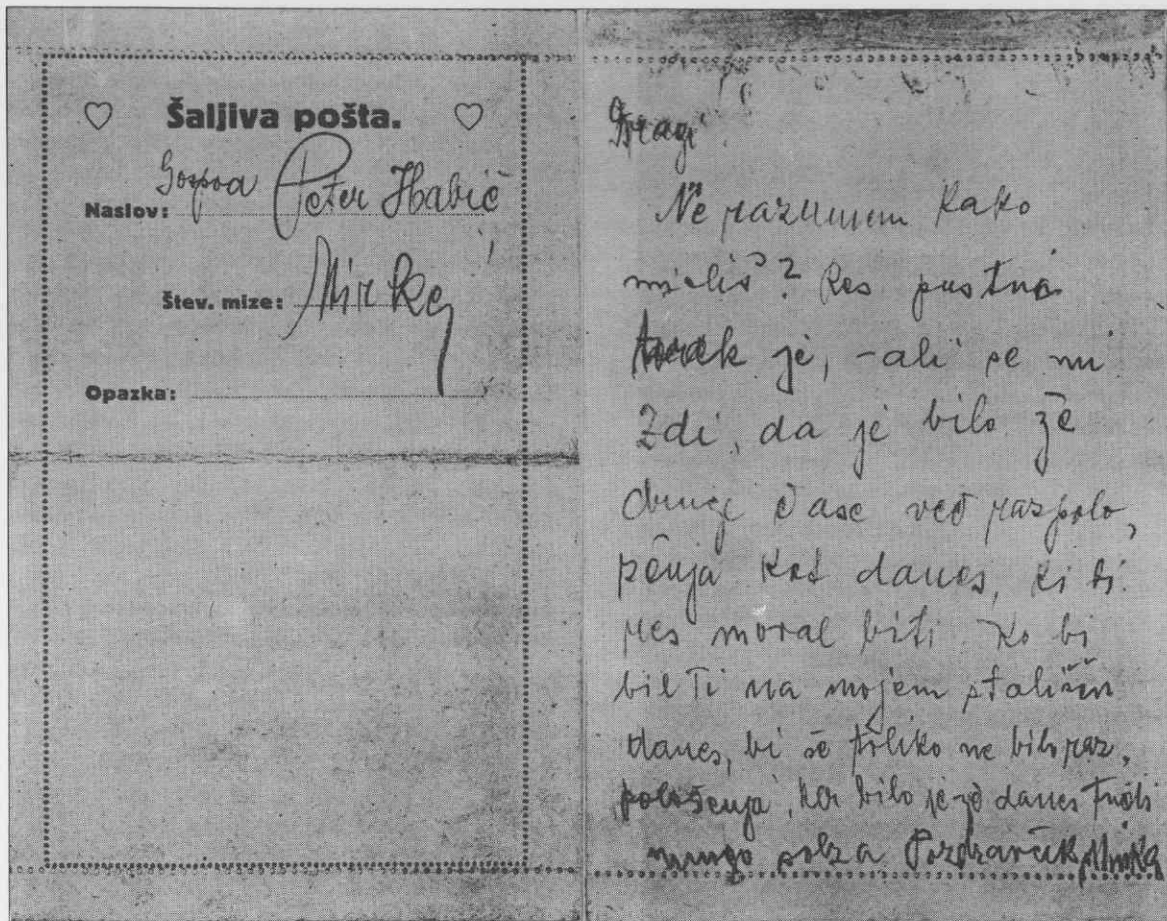 ♡ Šaljiva pošta. ♡
Naslov: Gospod Peter Habič
Štev. mize: Mirke
Opazka:
Dragi!
Ne razumem kako
misliš? Res pustni
torek je, - ali se mi
zdi, da je bilo že
druge čase več razpolo,
ženja kot danes, ki bi
res moral biti ko bi
bil Ti na mojem stališču
danes, bi še toliko ne bilo raz,
položenja, ker bilo je že danes tudi
mnogo solza Pozdravček Minka